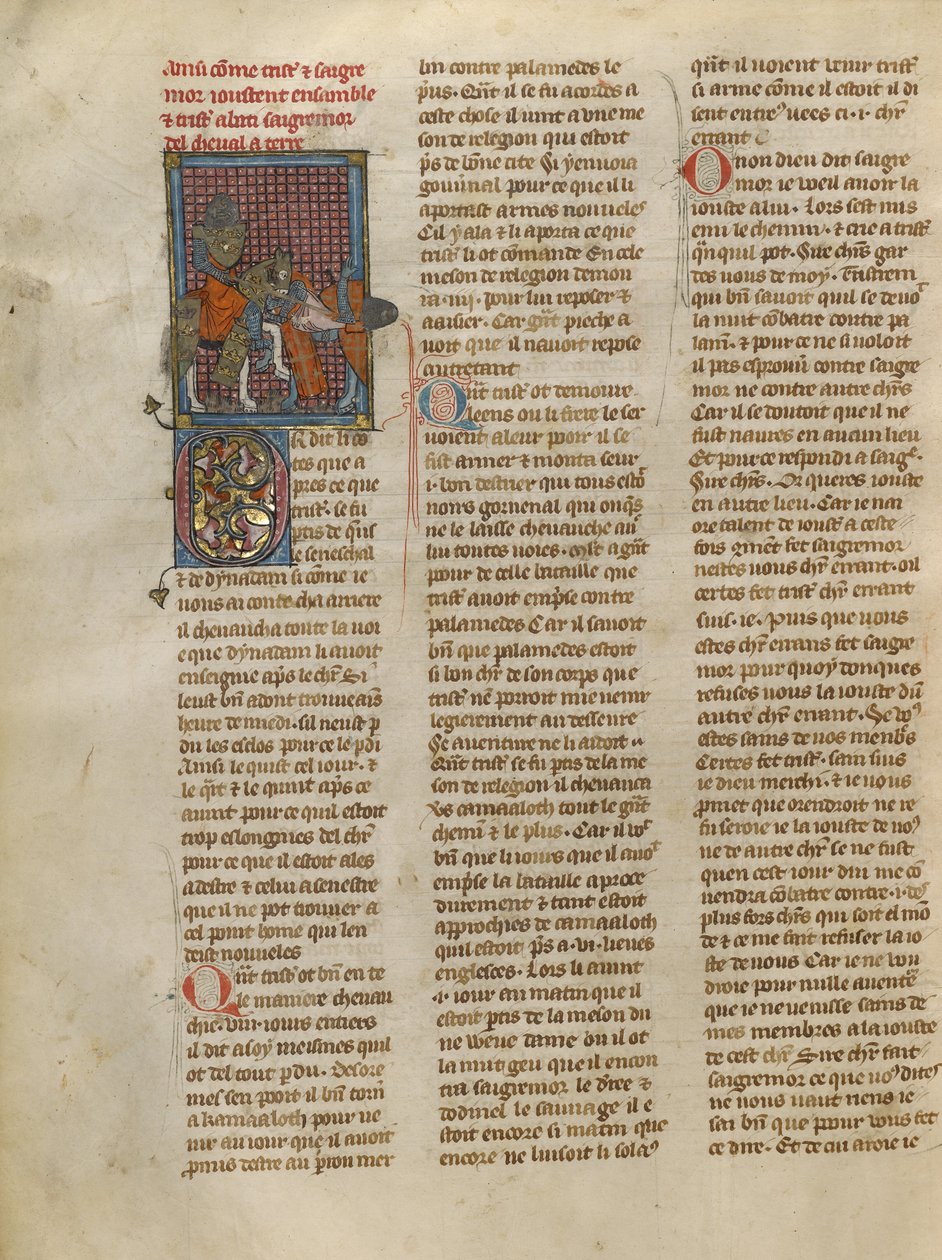 Ainsi cōme trist' & saigre
mor ioustent ensamble
& trist' abati saigremor
del cheual a terre
Or dit li cō
tes que a
pres ce que
trist'. se fu
ptis de q̄us
le seneschal
& de dynadam si cōme ie
uous ai conte cha arriere
il cheuaucha toute la uoi
e que dynadam li auoit
enseignie ap̄s le chr̄. Si
leust bn̄ adont trouue ains
heure de miedi. sil neust p
du les esclos pour ce le p̄di
Ainsi le quist cel iour. &
le q̄rt & le quint ap̄s ce
auint pour ce quil estoit
trop eslongnies del chr̄
pour ce que il estoit ales
a destre & celui a senestre
que il ne pot trouuer a
cel point home qui len
deist nouueles
Qn̄t trist' ot bn̄ en te
le maniere cheuau
chie. viii. iours entiers
il dit a soy meismes quil
ot del tout pdu. Desore
mes sen pooit il bn̄ torn̄
a kamaaloth pour ue
nir au iour que il auoit
pmis destre au p̄ron mer
lin contre palamedes le
p̄us. Qn̄t il se fu acordes a
ceste chose il uint a vne me
son de relegion qui estoit
p̄s de bōne cite Si y enuoia
gouūnal pour ce que il li
aportast armes nouueles
Cil y ala & li aporta ce que
trist' li ot cōmande En cele
meson de relegion demou
ra .iiii. iour lui reposer &
aaisier. Car gn̄t pieche a
uoit que il nauoit repose
autretant
Qn̄t trist' ot demoure
leens ou li frere le ser
uoient a leur pooir il se
fist armer & monta seur
.i. bon destrier qui tous estoit
noirs gouuenal qui onq̄s
ne le laisse cheuauche au'
lui toutes uoies. Mlt' a gn̄t
pooir de celle bataille que
trist' auoit emp̄se contre
palamedes Car il sauoit
bn̄ que palamedes estoit
si bon chr̄ de son corps que
trist' nē porroit mie uenir
legierement au desseure
Se auenture ne li aidoit
Qn̄t trist' se fu ptis de la me
son de relegion il cheuauca
v̄s camaaloth tout le gn̄t
chemī & le plus. Car il uo'
bn̄ que li iours que il auo'
emp̄se la bataille aproce
durement & tant estoit
approchies de camaaloth
quil estoit p̄s a .vi. lieues
englesces. Lors li auint
.i. iour au matin que il
estoit ptis de la meson du
ne veue dame ou il ot
la nuit geu que il encon
tra saigremor le d'ree &
dodinel le sauuage il e
stoit encore si matin que
encore ne luisoit li solaus
qn̄t il uoient uenir trist'
si arme cōme il estoit il di
sent entre' vees ci .i. chr̄
errant
Onon dieu dit saigre
mor ie weil auoir la
iouste a lui. Lors sest mis
enmi le chemin. & crie a trist'
q̄n quil pot. Sire chr̄s gar
des uous de moy. Tristrem
qui bn̄ sauoit quil se deuo'
la nuit cōbatre contre pa
lam̄. & pour ce ne si uoloit
il pas esprouū contre saigre
mor ne contre autre chr̄s
Car il se doutoit que il ne
fust naures en aucun lieu
Et pour ce respondi a saigr'.
Sire chr̄s. Or queres iouste
en autre lieu. Car ie nai
ore talent de ioust' a ceste
fois 9mēt fet saigremor
nestes uous chr̄ errant. oil
certes fet trist' chr̄ errant
suis. ie. Puis que uous
estes chr̄ errans fet saigre
mor pour quoy donques
refuses uous la iouste dun
autre chr̄ errant. Se uo'
estes sains de uos menbs
Certes fet trist'. sain suis
ie dieu merchi. & ie uous
pmet que orendroit ne re
fuseroie ie la iouste de uo'
ne de autre chr̄ se ne fust
quen cest iour dui me cō
uendra cōbatre contre .i. des
plus fors chr̄s qui soit el mō
de & ce me fait refuser la io
ste de uous Car ie ne uou
droie pour nulle auentē
que ie ne uenisse sains de
mes membres a la iouste
de cest chr̄ Sire chr̄ fait
saigremor ce que uo' dites
ne uous uaut riens ie
sai bn̄ que poour uous fet
ce dire. Et de cui aroie ie